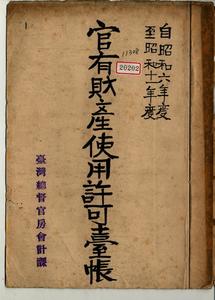 自昭和六年度
至昭和十一年度
官有財產使用許可臺帳
11308
20202
臺灣總督官房會計課